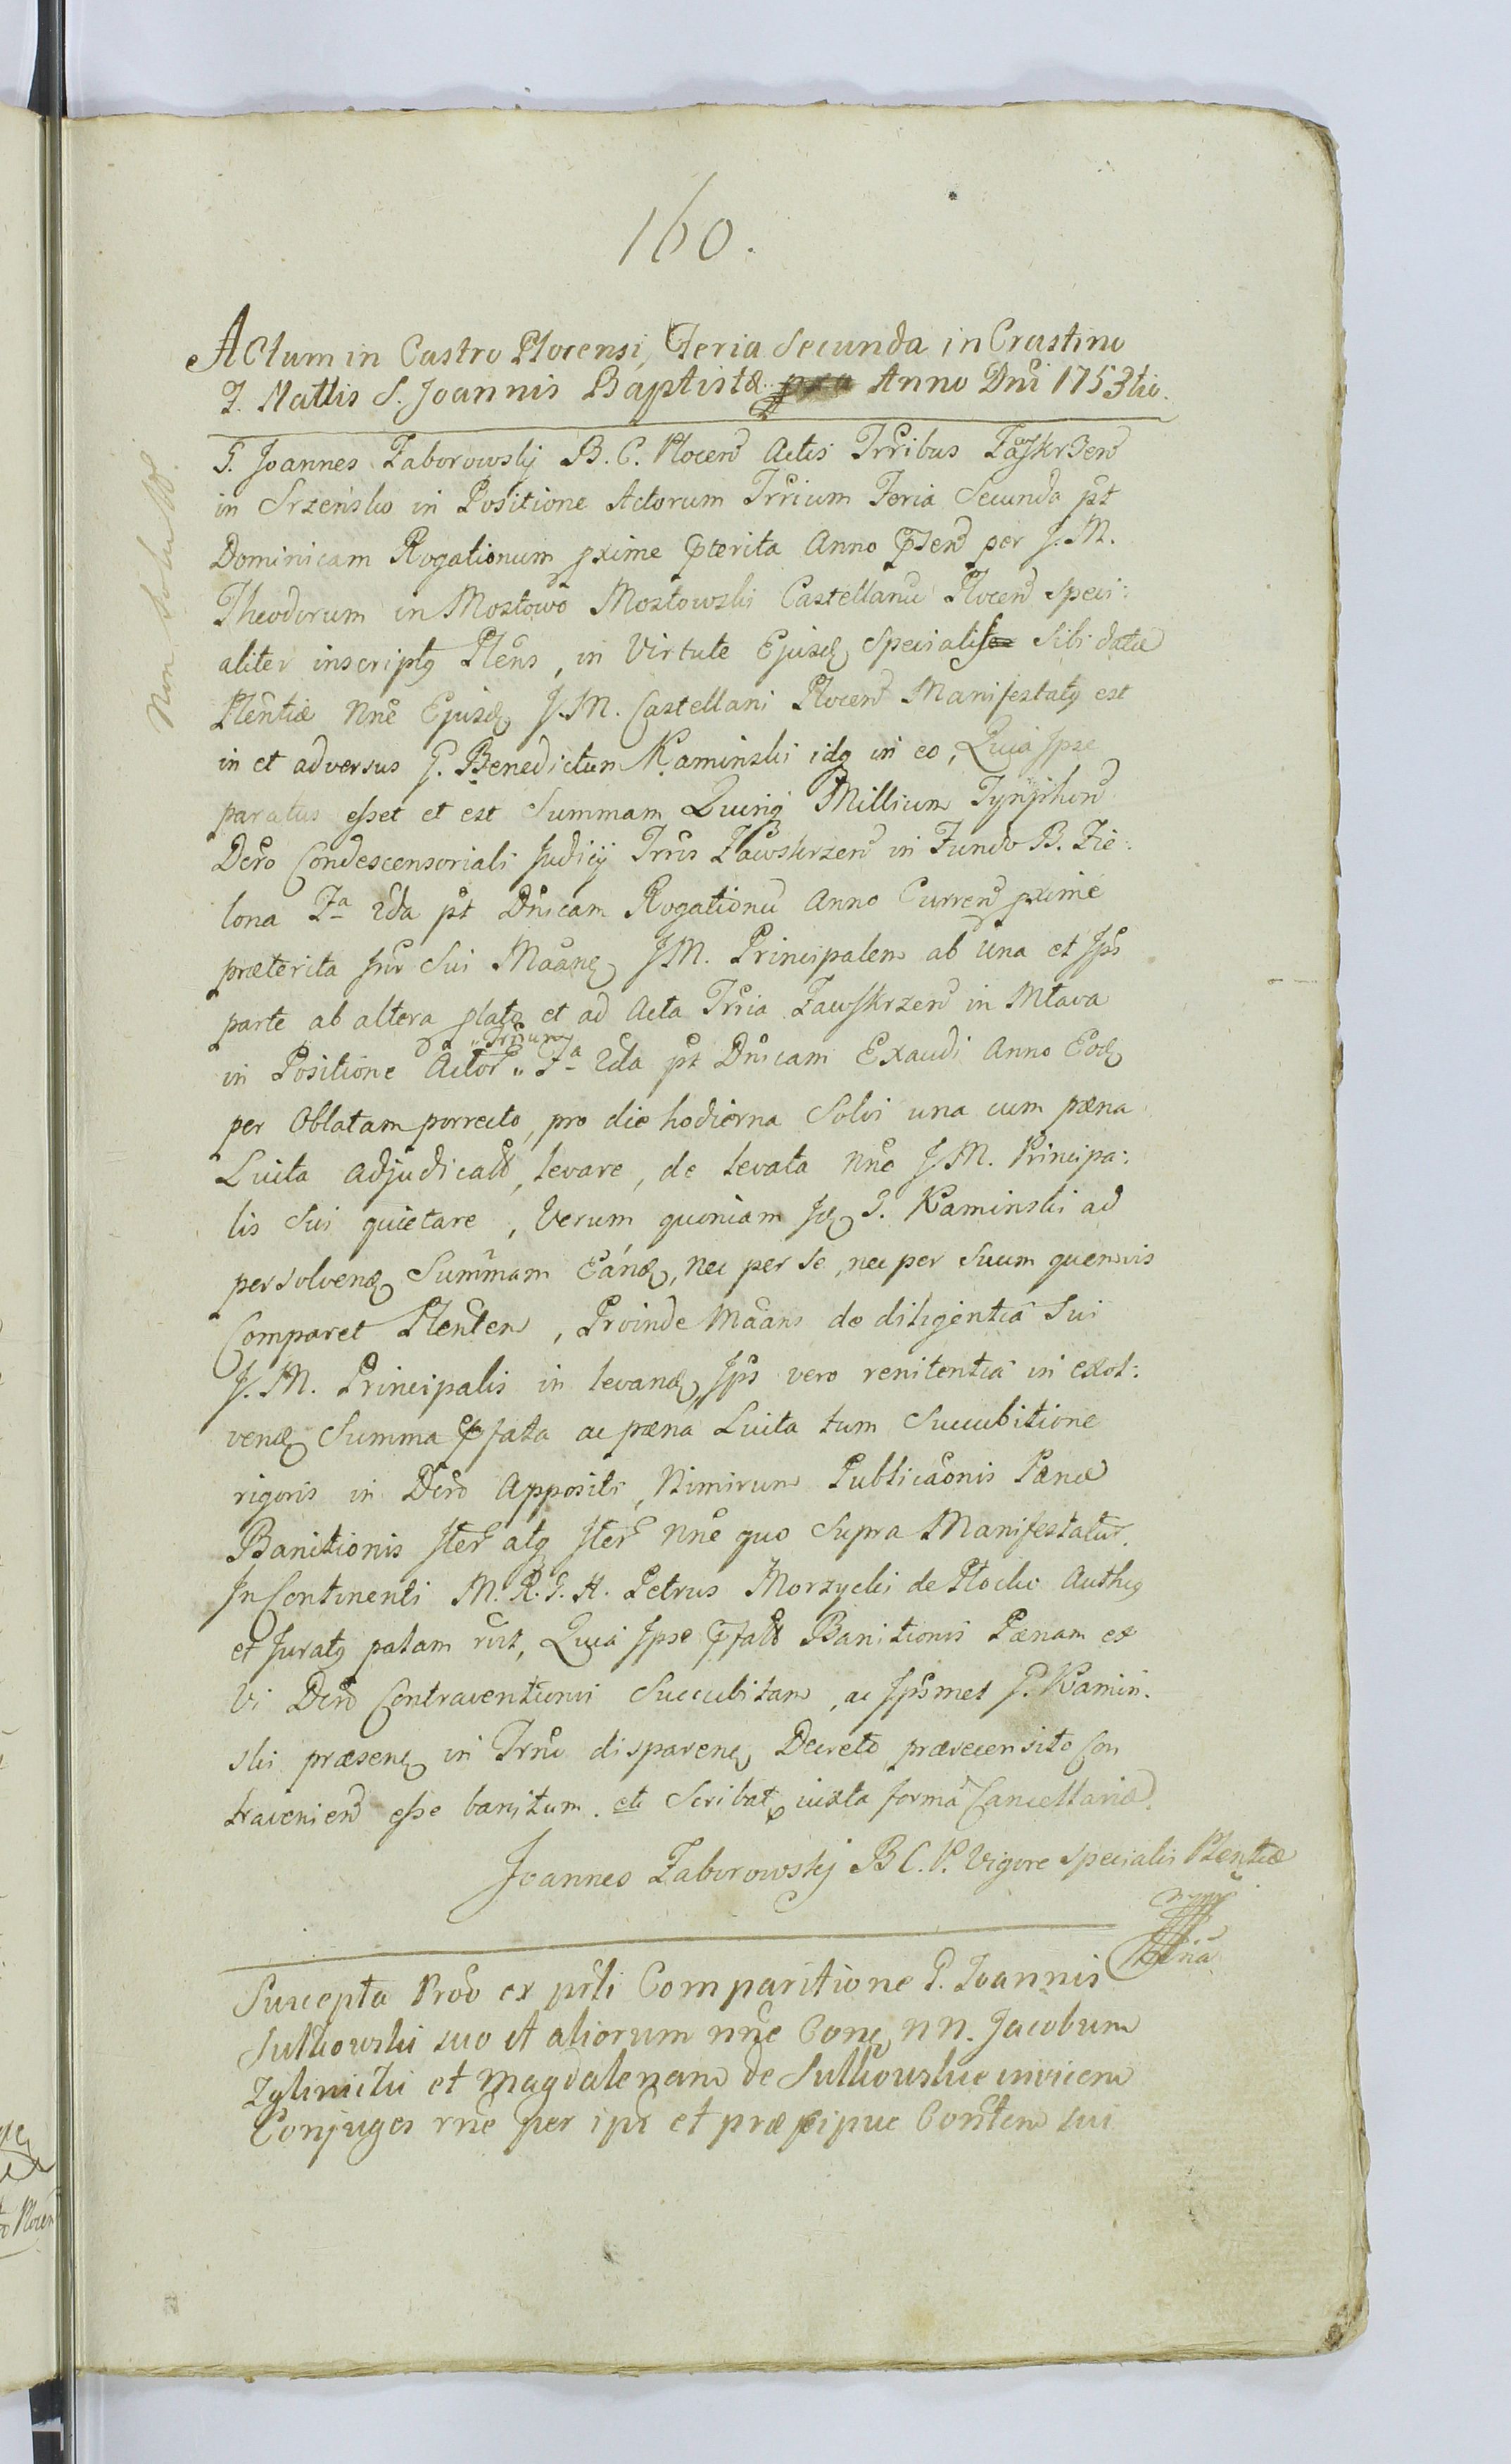 160.
Actum in Castro Plocensi, Feria Secunda in Crastino
F. Nattis S. Joannis Baptistæ Anno Dni 1753tio.
Non solutt
G. Joannes Zaborowsky B. C. Plocen Actis Trribus Zaskrzen
in Srzensko in Positione Actorum Trrium Feria Secunda pt
Dominicam Rogationum pxime pterita Anno pnten per J. M.
Theodorum in Mostowo Mostowski Castellanu Plocen speci:
aliter inscriptq Plens, in Virtute Ejusd specialis sibi datæ
Plentiæ nne Ejusd J. M. Castellani Plocen Manifestatq est
in et adversus G. Benedictum Kaminski idq in eo, Quia Ipse
paratus esset et est Summam Quinq Millium Tynphon
Dcro Condescensoriali Judicij Trris Zawskrzen in Fundo B. Zie:
lona Fa 2da pt Dnicam Rogationu Anno Curren pxime
præterita inr sui Maang JM. Principalem ab una et Jps
parte ab altera plato et ad Acta Trria Zawskrzen in Mlava
in Positione Actor " Trrium " Fa 2da pt Dnicam Exaudi Anno Eod
per Oblatam porrecto, pro die hodierna Solvi una cum pæna
Luita adjudicatt, levare, de levata nne J M. Principa:
lis sui quietare, Verum quoniam Jd G. Kaminski ad
persolvend Summam Eand, nec per se, nec per suum quemvis
Comparet Plenten, Proinde Maans de diligentia Sui
J. M. Principalis in levand, Jps vero renitentia in exol:
vend Summa pfata ac pæna Luita tum Succubitione
rigoris in Dcro Appositi, Nimirum Publicaonis Pænæ
Banitionis Iter atq Iter nne quo supra Manifestatur.
In Continenti M. R. G. H. Petrus Morzycki de Plocko Authq
et Juratq palam rlvt, Quia Ipse pfatt Banitionis Pænam ex
Vi Dcro Contraventionis Succubitam, ac Jpsmet G. Kamin:
ski præsenq in Trno disparenq Decreto præcensito Con
travenien esse banitum. et Scribat juxta forma Cancellariæ
Joannes Zaborowsky B C. P. Vigore Specialis Plentiæ
Suscepta Prod ex prti Comparitione G. Joannis
Sutkowski suo et aliorum nne Conq NN. Jacobum
Zglinicki et Magdalenam de Sutkowskie invicem
Conjuges rne per ips et præcipue Conten sui